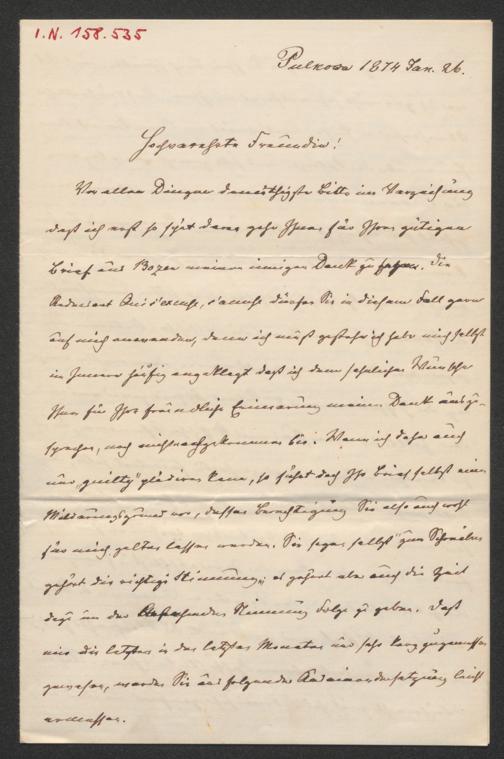 I.N. 158.535
Pulkowa 1874 Jan. 26.
Hochverehrte Freundin!
Vor allen Dingen demüthigste Bitte um Verzeihung
daß ich erst so spät daran gehe Ihnen für Ihren gütigen
Brief aus Bozen meinen innigen Dank zu sagen. Die
Redensart Qui s'excuse, s'accuse dürfen Sie in diesem Fall gern
auf mich anwenden, denn ich muß gestehn ich habe mich selbst
im Innern häufig angeklagt daß ich dem sehnlichen Wunsche
Ihnen für Ihre freundliche Erinnerung meinen Dank auszu-
sprechen, noch nicht nachgekommen bin. Wenn ich daher auch
nur "guilty" plädiren kann, so führt doch Ihr Brief selbst einen
Milderungsgrund an, dessen Berechtigung Sie also auch wohl
für mich gelten lassen werden. Sie sagen selbst "zum Schreiben
gehört die richtige Stimmung"; es gehört aber auch die Zeit
dazu um der Stimmung Folge zu geben. Daß
mir die letztere in den letzten Monaten nur sehr karg zugemessen
gewesen, werden Sie aus folgender Auseinandersetzung leicht
ermessen.